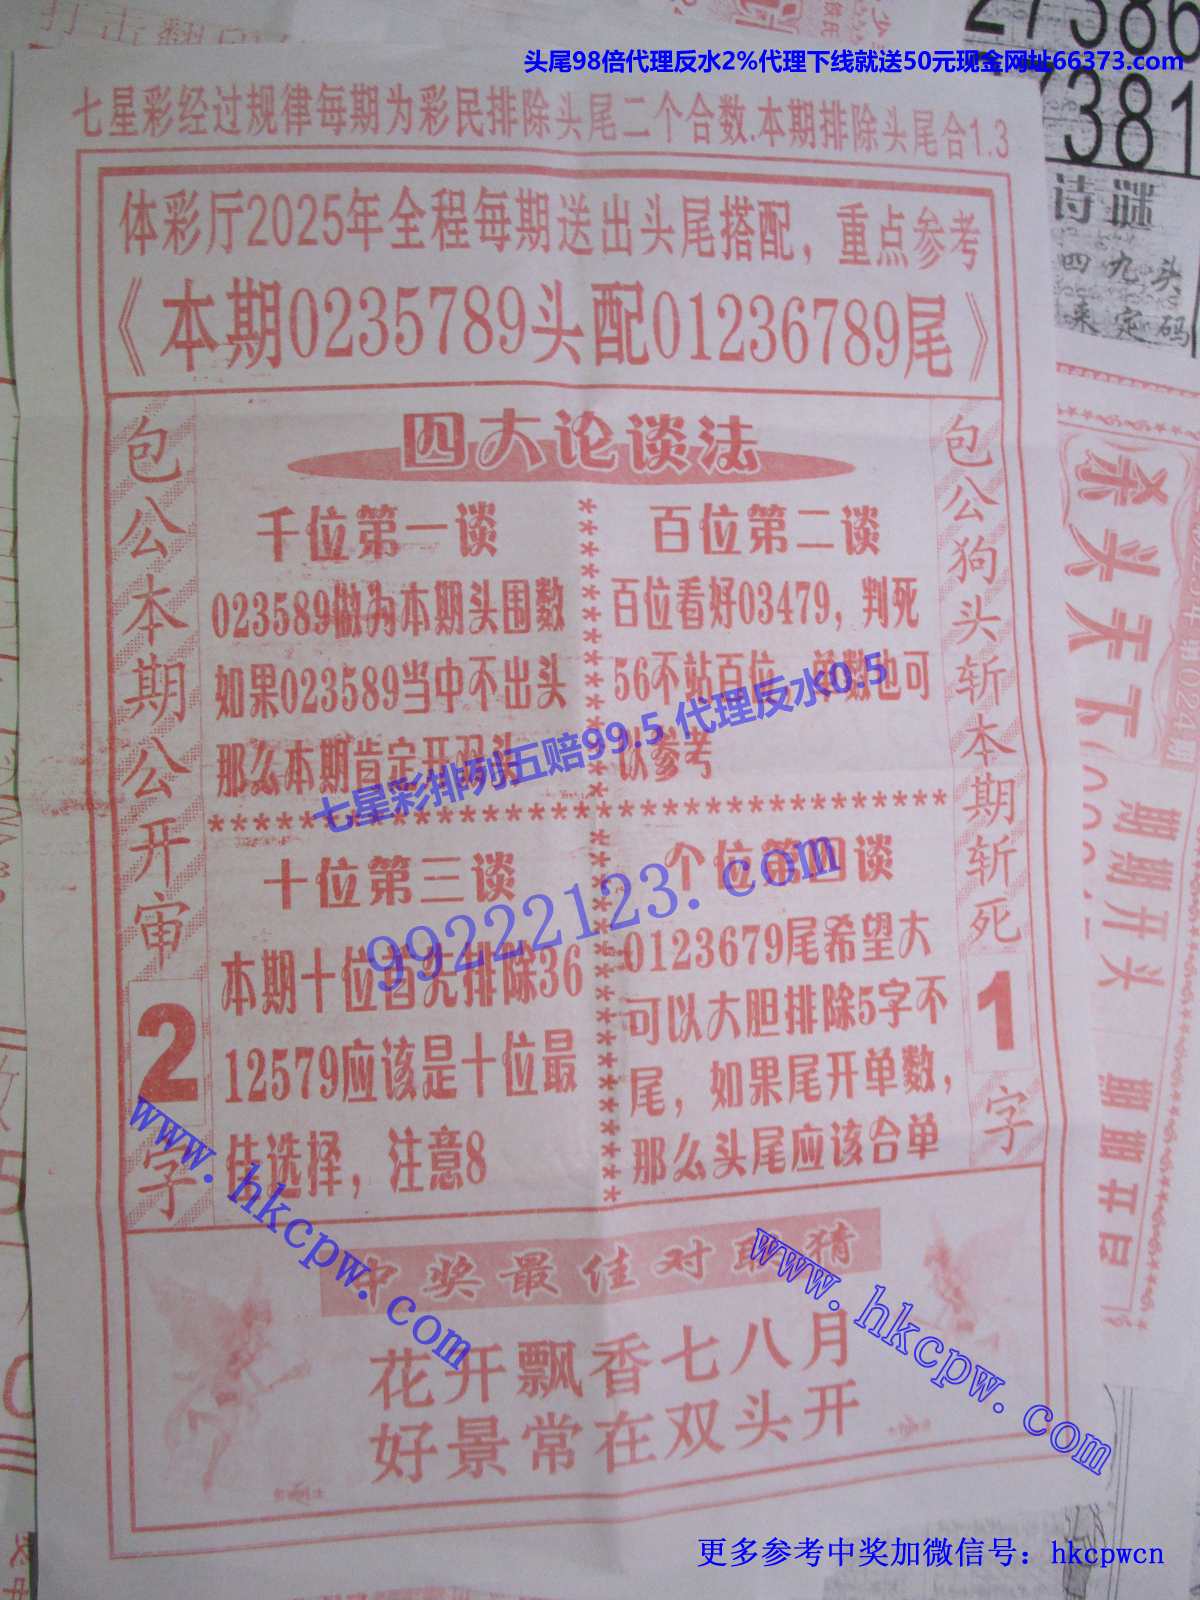 27386
头尾98倍代理反水2%代理下线就送50元现金网址66373.com
7381
七星彩经过规律每期为彩民排除头尾二个合数.本期排除头尾合1.3
诗谜
四九头
来定码
体彩厅2025年全程每期送出头尾搭配，重点参考
《本期0235789头配01236789尾》
四大论谈法
包公本期公开审
2
字
千位第一谈
023589做为本期头围数
如果023589当中不出头
那么本期肯定开双头
百位第二谈
百位看好03479，判死
56不站百位，单数也可
以参考
七星彩排列五赔99.5 代理反水0.5
99222123.com
十位第三谈
本期十位首先排除36
12579应该是十位最
佳选择，注意8
个位第四谈
0123679尾希望大
可以大胆排除5字不
尾，如果尾开单数，
那么头尾应该合单
包公狗头斩本期斩死
1
字
杀头天下
期期开头
www.hkcpw.com
www.hkcpw.com
中奖最佳对联猜
花开飘香七八月
好景常在双头开
更多参考中奖加微信号：hkcpwcn